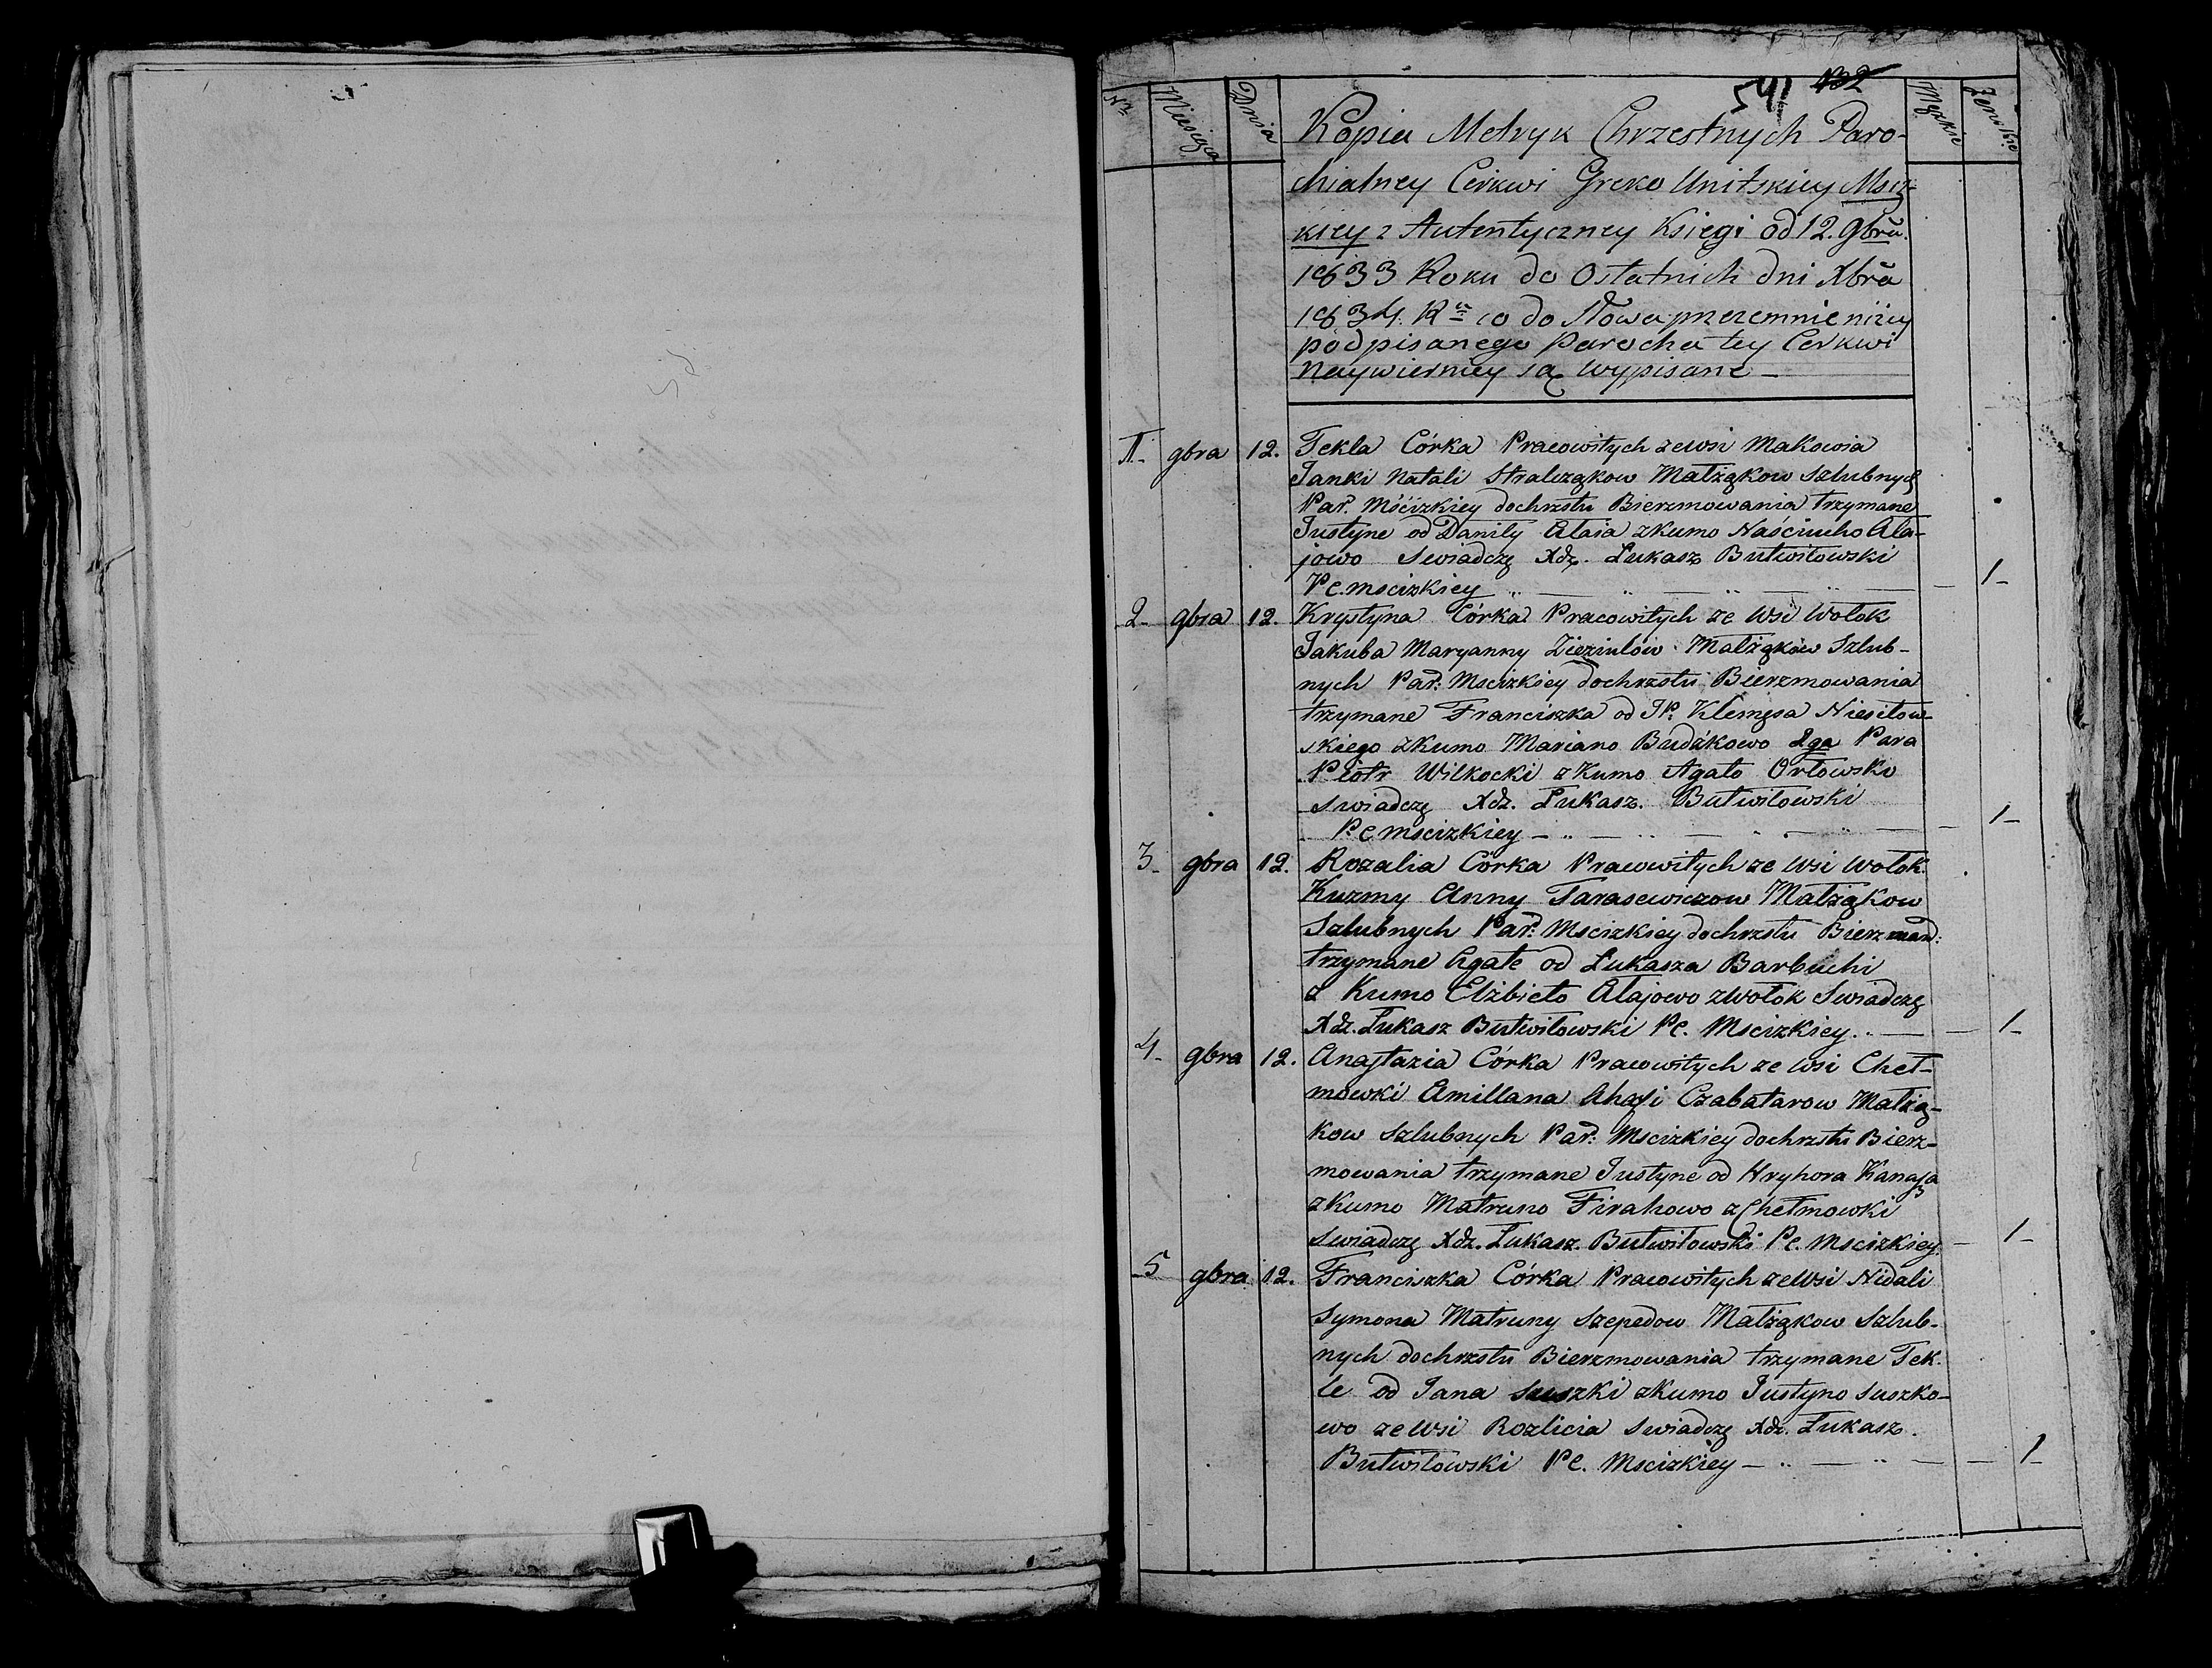 541 132
Nr Miesiąca Dnia Męzkie Żeńskie
Kopia Metryk Chrzestnych Paro-
chialney Cerkwi Greko Unitskiey Msciz-
kiey z Autentyczney Ksiegi od 12. 9bra.
1833 Roku do Ostatnich dni Xbra
1834. Ru co do Słowa przezemnie niżey
podpisanego Parocha tey Cerkwi
Naywierniey są wypisane —
1. 9bra 12. Tekla Córka Pracowitych ze wsi Makowia
Janki Natali Stralcząkow Małżąkow Szlubnych
Par. Mścizkiey dochrztu Bierzmowania trzymane
Justyne od Daniły Ałaia zkumo Naściucho Ała-
jowo Swiadczę Xdz. Łukasz Butwiłowski
PC. Mscizkiey — 1 —
2. 9bra 12. Krystyna Córka Pracowitych ze wsi Wołok
Jakuba Maryanny Zieziulow Małżąkow Szlub-
nych Par: Mscizkiey dochrztu Bierzmowania
trzymane Franciszka od JP. Klemęsa Niesiłow-
skiego zkumo Mariano Budźkowo 2ga Para
Piotr Wilkocki zkumo Agato Orłowsko
Swiadczę Xdz. Łukasz. Butwiłowski
PC Mscizkiey — 1 —
3. 9bra 12. Rozalia Córka Pracowitych ze wsi Wołok.
Kuzmy Anny Tarasewiczow Małżąkow
Szlubnych Par: Mscizkiey dochrztu Bierzmow:
trzymane Agate od Łukasza Barbuchi
z Kumo Elżbieto Ałajowo zWołok Swiadczę
Xdz. Łukasz Butwiłowski PC. Mscizkiey. — 1 —
4. 9bra 12. Anastazia Córka Pracowitych ze wsi Cheł-
mowki Amillana Ahafi Czabatarow Małżą-
kow Szlubnych Par: Mscizkiey dochrztu Bierz-
mowania trzymane Justyne od Hryhora
zkumo Matruno Firahowo zChełmowki
Swiadczę Xdz. Łukasz. Butwiłowski PC. Mscizkiey. — 1 —
5 9bra 12. Franciszka Córka Pracowitych ze wsi Nidali
Symona Matruny Szepedow Małżąkow Szlub-
nych dochrztu Bierzmowania trzymane Tek-
le od Jana Suszki zkumo Justyno Suszko-
wo ze wsi Rozlicia Swiadczę Xdz. Łukasz.
Butwiłowski PC. Mscizkiey — 1 —